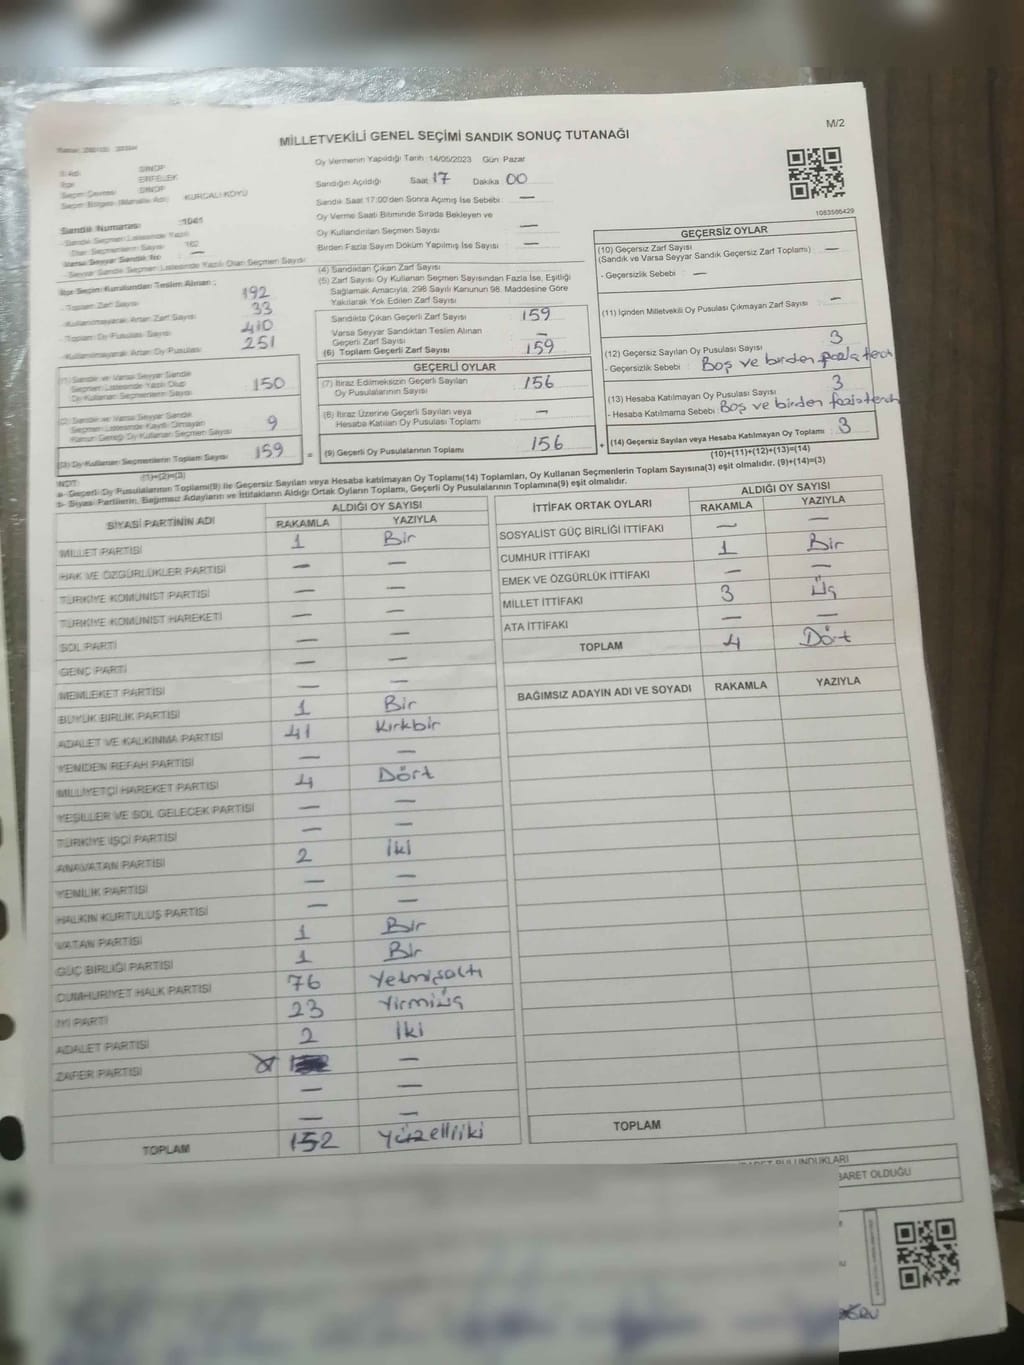 M/2
MİLLETVEKİLİ GENEL SEÇİMİ SANDIK SONUÇ TUTANAĞI
1083566429
İl Adı SİNOP
İlçe ERFELEK
Seçim Çevresi SİNOP
Seçim Bölgesi (Mahalle Adı) KURCALI KÖYÜ
Sandık Numarası :1041
- Sandık Seçmen Listesinde Yazılı
Olan Seçmenlerin Sayısı 162
Varsa Seyyar Sandık No —
- Seyyar Sandık Seçmen Listesinde Yazılı Olan Seçmen Sayısı
Oy Vermenin Yapıldığı Tarih :14/05/2023 Gün Pazar
Sandığın Açıldığı Saat 17 Dakika 00
Sandık Saat 17:00'den Sonra Açımış İse Sebebi —
Oy Verme Saati Bitiminde Sırada Bekleyen ve
Oy Kullandırılan Seçmen Sayısı —
Birden Fazla Sayım Döküm Yapılmış İse Sayısı —
İlçe Seçim Kurulundan Teslim Alınan ;
- Toplam Zarf Sayısı 192
- Kullanılmayarak Artan Zarf Sayısı 33
- Toplam Oy Pusulası Sayısı 410
- Kullanılmayarak Artan Oy Pusulası 251
(1) Sandık ve Varsa Seyyar Sandık
Seçmen Listesinde Yazılı Olup
Oy Kullanan Seçmenlerin Sayısı 150
(2) Sandık ve Varsa Seyyar Sandık
Seçmen Listesinde Kayıtlı Olmayan
Kanun Gereği Oy Kullanan Seçmen Sayısı 9
(3) Oy Kullanan Seçmenlerin Toplam Sayısı 159
(1)+(2)=(3)
(4) Sandıktan Çıkan Zarf Sayısı
(5) Zarf Sayısı Oy Kullanan Seçmen Sayısından Fazla İse, Eşitliği
Sağlamak Amacıyla, 298 Sayılı Kanunun 98. Maddesine Göre
Yakılarak Yok Edilen Zarf Sayısı
Sandıkta Çıkan Geçerli Zarf Sayısı 159
Varsa Seyyar Sandıktan Teslim Alınan
Geçerli Zarf Sayısı —
(6) Toplam Geçerli Zarf Sayısı 159
GEÇERLİ OYLAR
(7) İtiraz Edilmeksizin Geçerli Sayılan
Oy Pusulalarının Sayısı 156
(8) İtiraz Üzerine Geçerli Sayılan veya
Hesaba Katılan Oy Pusulası Toplamı —
= (9) Geçerli Oy Pusulalarının Toplamı 156
GEÇERSİZ OYLAR
(10) Geçersiz Zarf Sayısı
(Sandık ve Varsa Seyyar Sandık Geçersiz Zarf Toplamı) —
- Geçersizlik Sebebi : —
(11) İçinden Milletvekili Oy Pusulası Çıkmayan Zarf Sayısı —
(12) Geçersiz Sayılan Oy Pusulası Sayısı 3
- Geçersizlik Sebebi : Boş ve birden fazla terch
(13) Hesaba Katılmayan Oy Pusulası Sayısı 3
- Hesaba Katılmama Sebebi : Boş ve birden fazla terch
+ (14) Geçersiz Sayılan veya Hesaba Katılmayan Oy Toplamı 3
(10)+(11)+(12)+(13)=(14)
NOT:
a- Geçerli Oy Pusulalarının Toplamı(9) ile Geçersiz Sayılan veya Hesaba katılmayan Oy Toplamı(14) Toplamları, Oy Kullanan Seçmenlerin Toplam Sayısına(3) eşit olmalıdır. (9)+(14)=(3)
b- Siyasi Partilerin, Bağımsız Adayların ve İttifakların Aldığı Ortak Oyların Toplamı, Geçerli Oy Pusulalarının Toplamına(9) eşit olmalıdır.
SİYASİ PARTİNİN ADI ALDIĞI OY SAYISI
RAKAMLA YAZIYLA
MİLLET PARTİSİ 1 Bir
HAK VE ÖZGÜRLÜKLER PARTİSİ — —
TÜRKİYE KOMÜNİST PARTİSİ — —
TÜRKİYE KOMÜNİST HAREKETİ — —
SOL PARTİ — —
GENÇ PARTİ — —
MEMLEKET PARTİSİ — —
BÜYÜK BİRLİK PARTİSİ 1 Bir
ADALET VE KALKINMA PARTİSİ 41 Kırkbir
YENİDEN REFAH PARTİSİ — —
MİLLİYETÇİ HAREKET PARTİSİ 4 Dört
YEŞİLLER VE SOL GELECEK PARTİSİ — —
TÜRKİYE İŞÇİ PARTİSİ — —
ANAVATAN PARTİSİ 2 İki
YENİLİK PARTİSİ — —
HALKIN KURTULUŞ PARTİSİ — —
VATAN PARTİSİ 1 Bir
GÜÇ BİRLİĞİ PARTİSİ 1 Bir
CUMHURİYET HALK PARTİSİ 76 Yetmişaltı
İYİ PARTİ 23 Yirmiüç
ADALET PARTİSİ 2 İki
ZAFER PARTİSİ —
— —
— —
TOPLAM 152 Yüzelliiki
İTTİFAK ORTAK OYLARI ALDIĞI OY SAYISI
RAKAMLA YAZIYLA
SOSYALİST GÜÇ BİRLİĞİ İTTİFAKI — —
CUMHUR İTTİFAKI 1 Bir
EMEK VE ÖZGÜRLÜK İTTİFAKI — —
MİLLET İTTİFAKI 3 Üç
ATA İTTİFAKI — —
TOPLAM 4 Dört
BAĞIMSIZ ADAYIN ADI VE SOYADI RAKAMLA YAZIYLA
TOPLAM
BULUNDUKLARI
BARET OLDUĞU